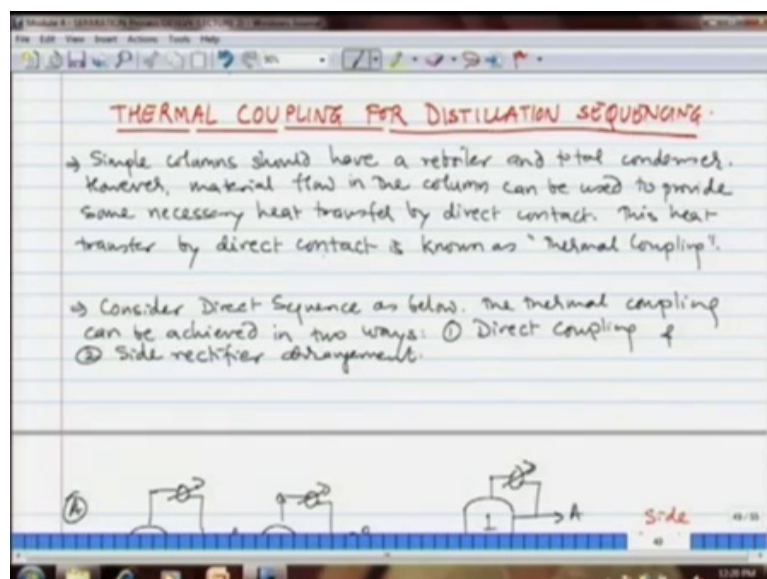 Module 4 - SEPARATION Process DESIGN (LECTURE 2) - Windows Journal
File Edit View Insert Actions Tools Help
THERMAL COUPLING FOR DISTILLATION SEQUENCING.
→ Simple columns should have a reboiler and total condenser.
However, material flow in the column can be used to provide
some necessary heat transfer by direct contact. This heat
transfer by direct contact is known as "Thermal Coupling".
→ Consider Direct Sequence as below. The thermal coupling
can be achieved in two ways: ① Direct Coupling &
② Side rectifier arrangement.
Ⓐ
1 A Side
12:20 PM